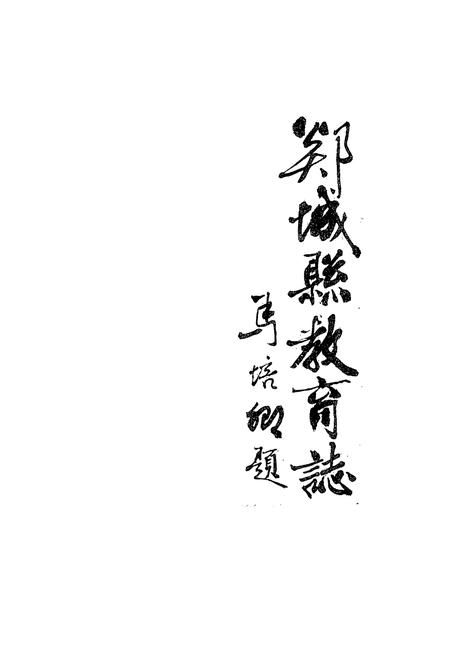 郯城縣教育誌
馬培卿題